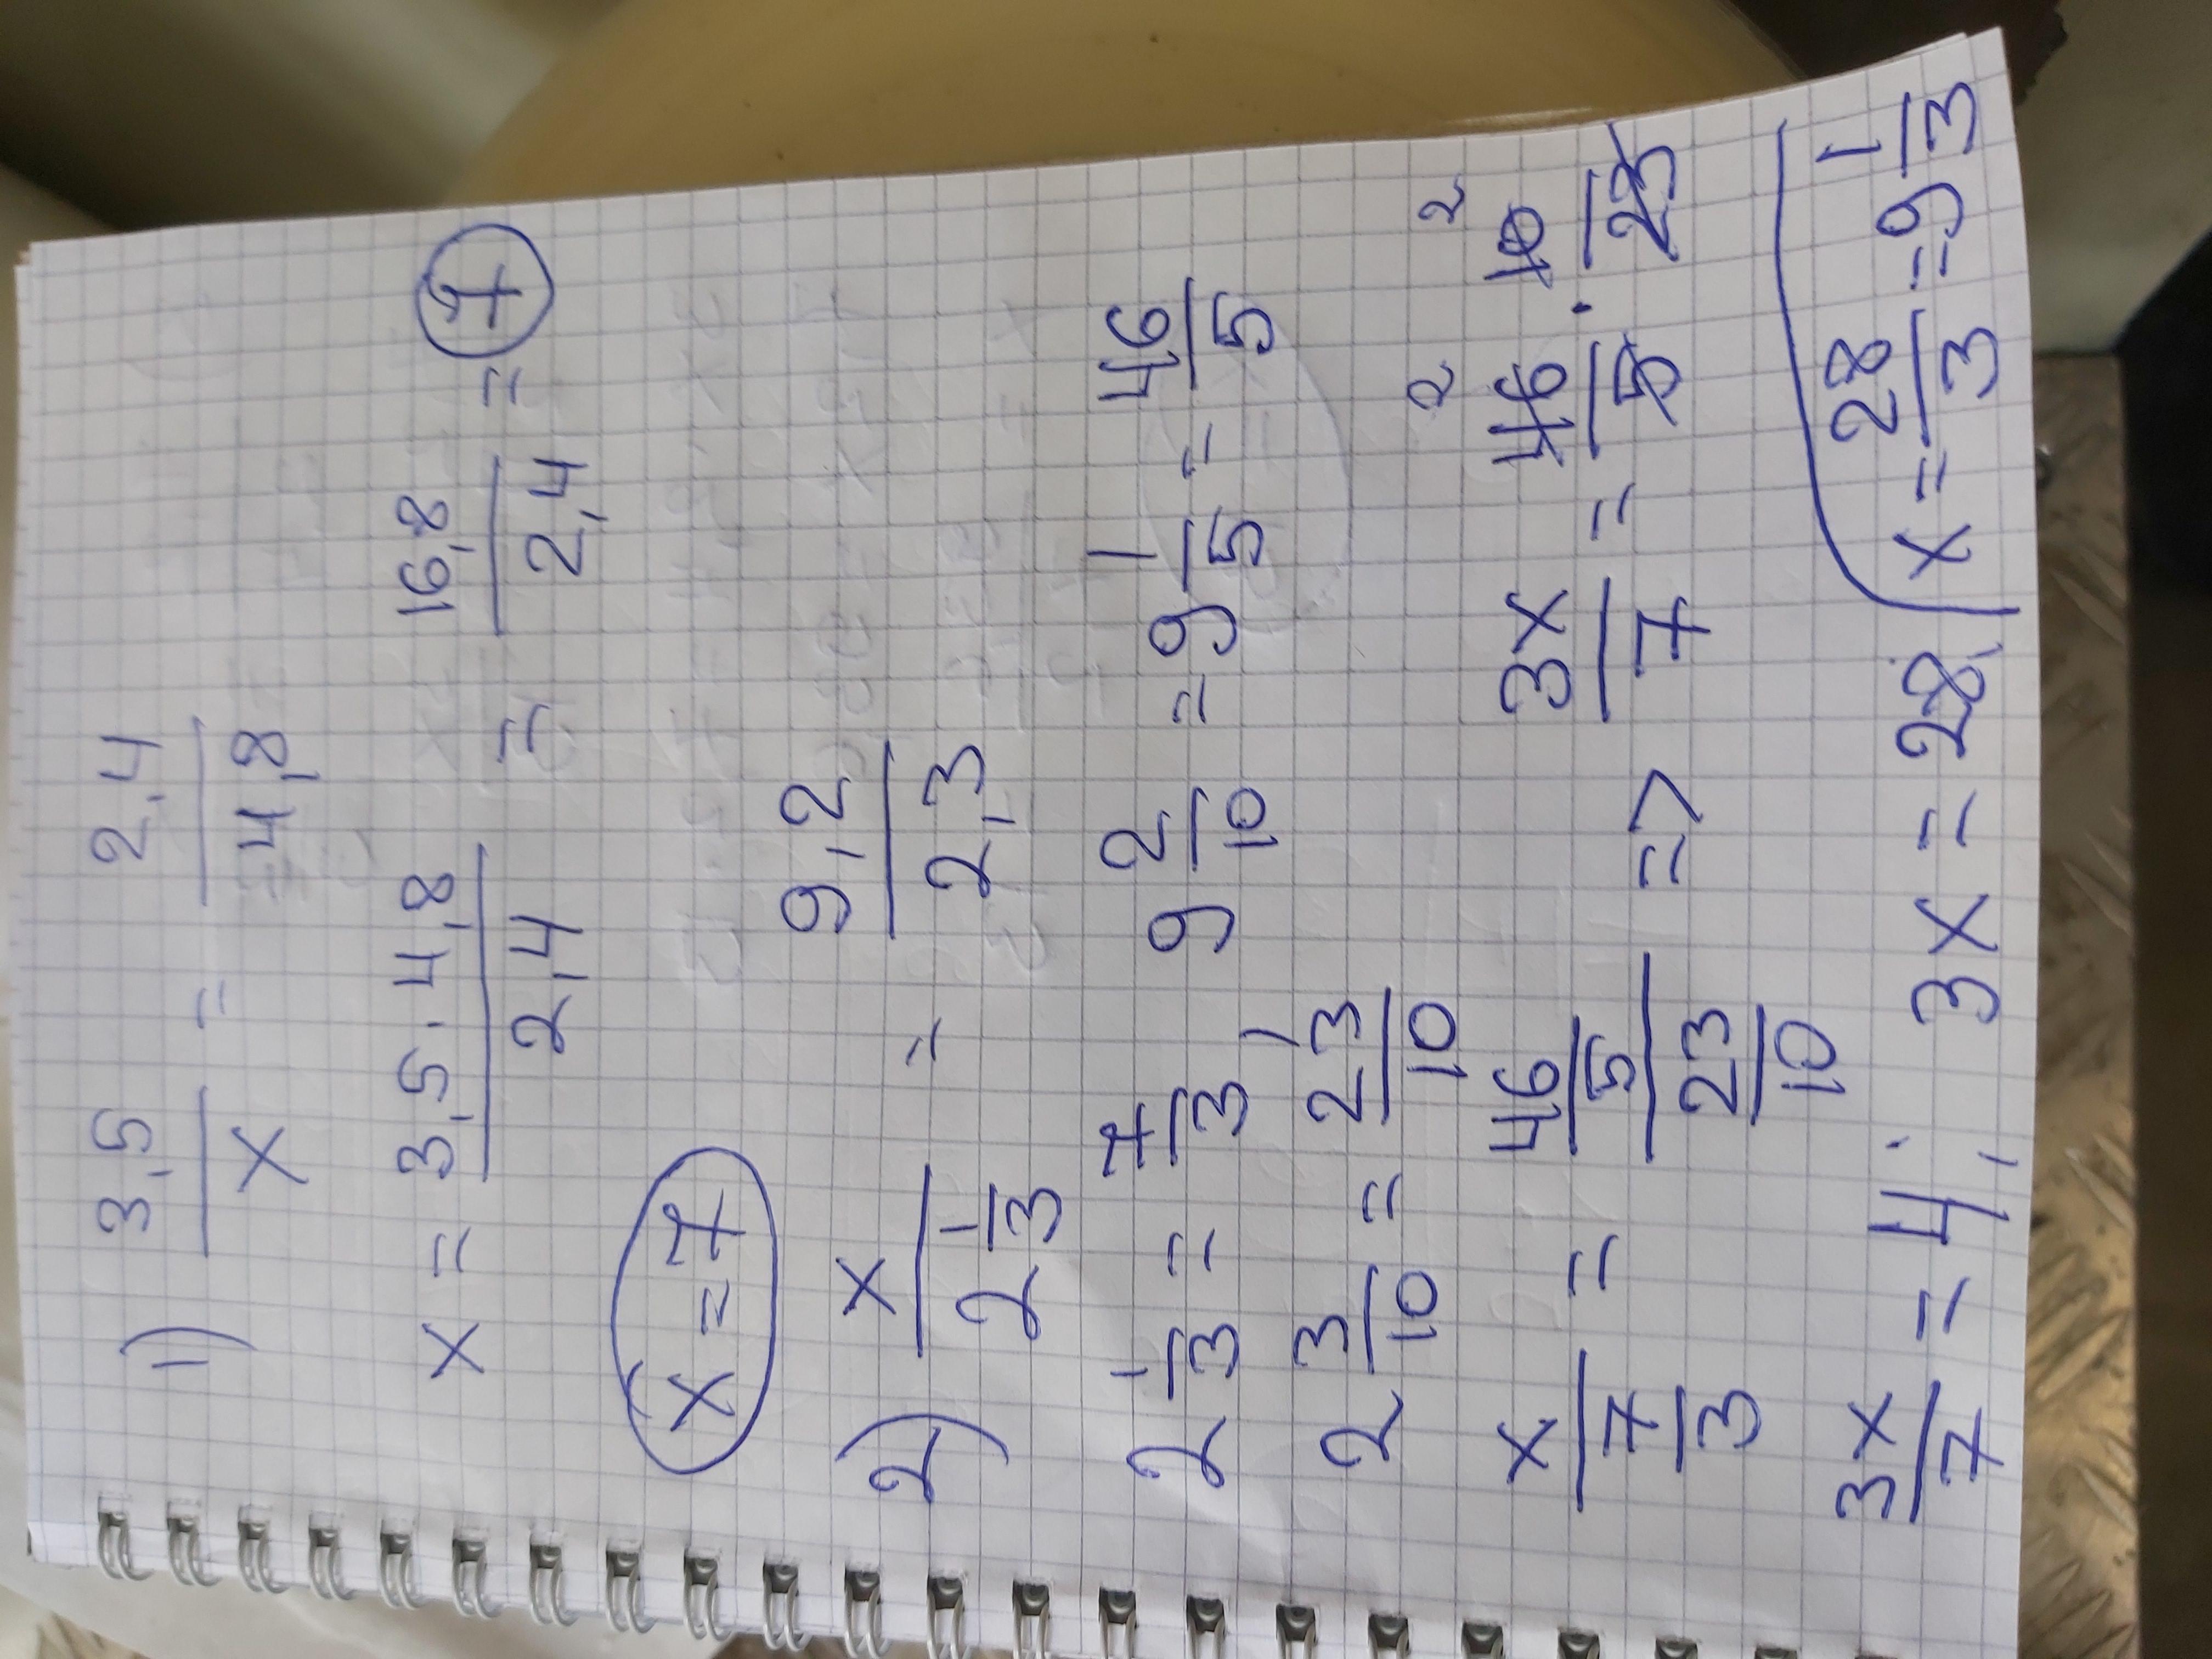 1) 3,5/x = 2,4/4,8
x = 3,5·4,8/2,4 = 16,8/2,4 = 7
x = 7
2) x/2 1/3 = 9,2/2,3
2 1/3 = 7/3, 9 2/10 = 9 1/5 = 46/5
2 3/10 = 23/10
x/(7/3) = (46/5)/(23/10) => 3x/7 = 46/5 · 10/23 2 2
3x/7 = 4; 3x = 28, x = 28/3 = 9 1/3